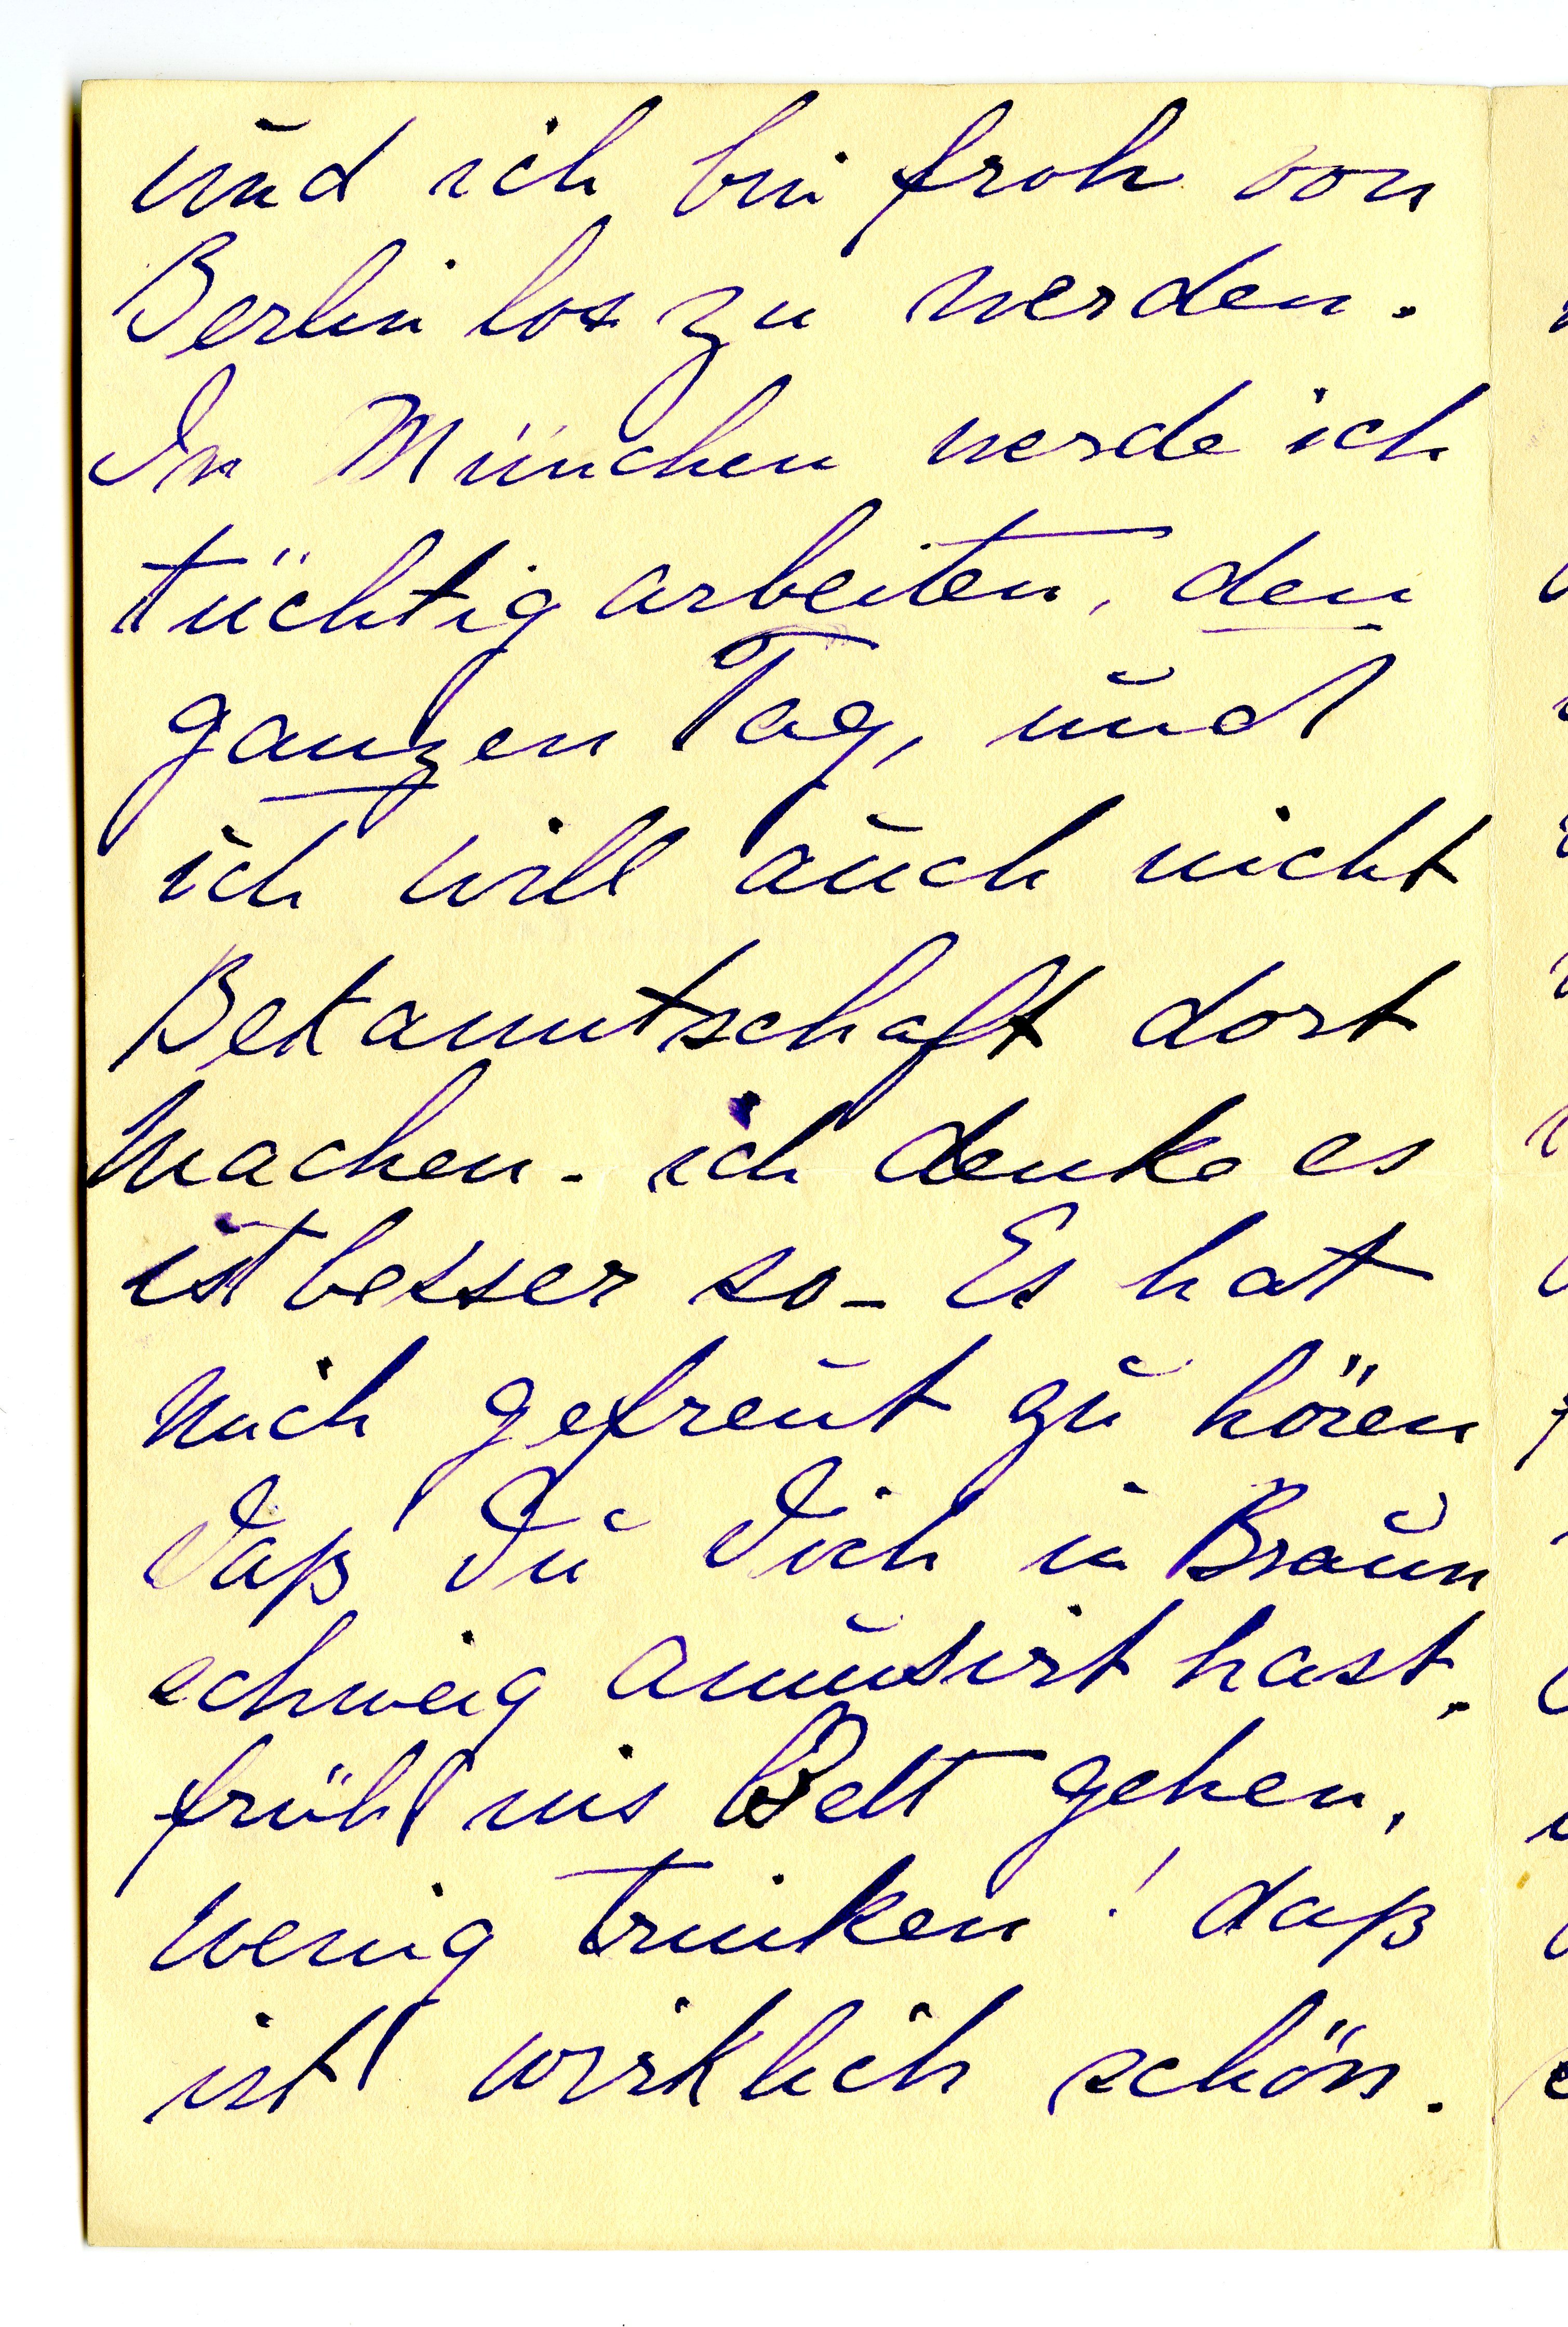 und ich bin froh von
Berlin los zu werden.
In München werde ich
tüchtig arbeiten, den
ganzen Tag, und
ich will auch nicht
Bekanntschaft dort
machen - ich denke es
ist besser so - Es hat
mich gefreut zu hören
Daß Du Dich in Braun
schweig amusirt hast.
früh ins Bett gehen,
wenig trinken! daß
ist wirklich schön.